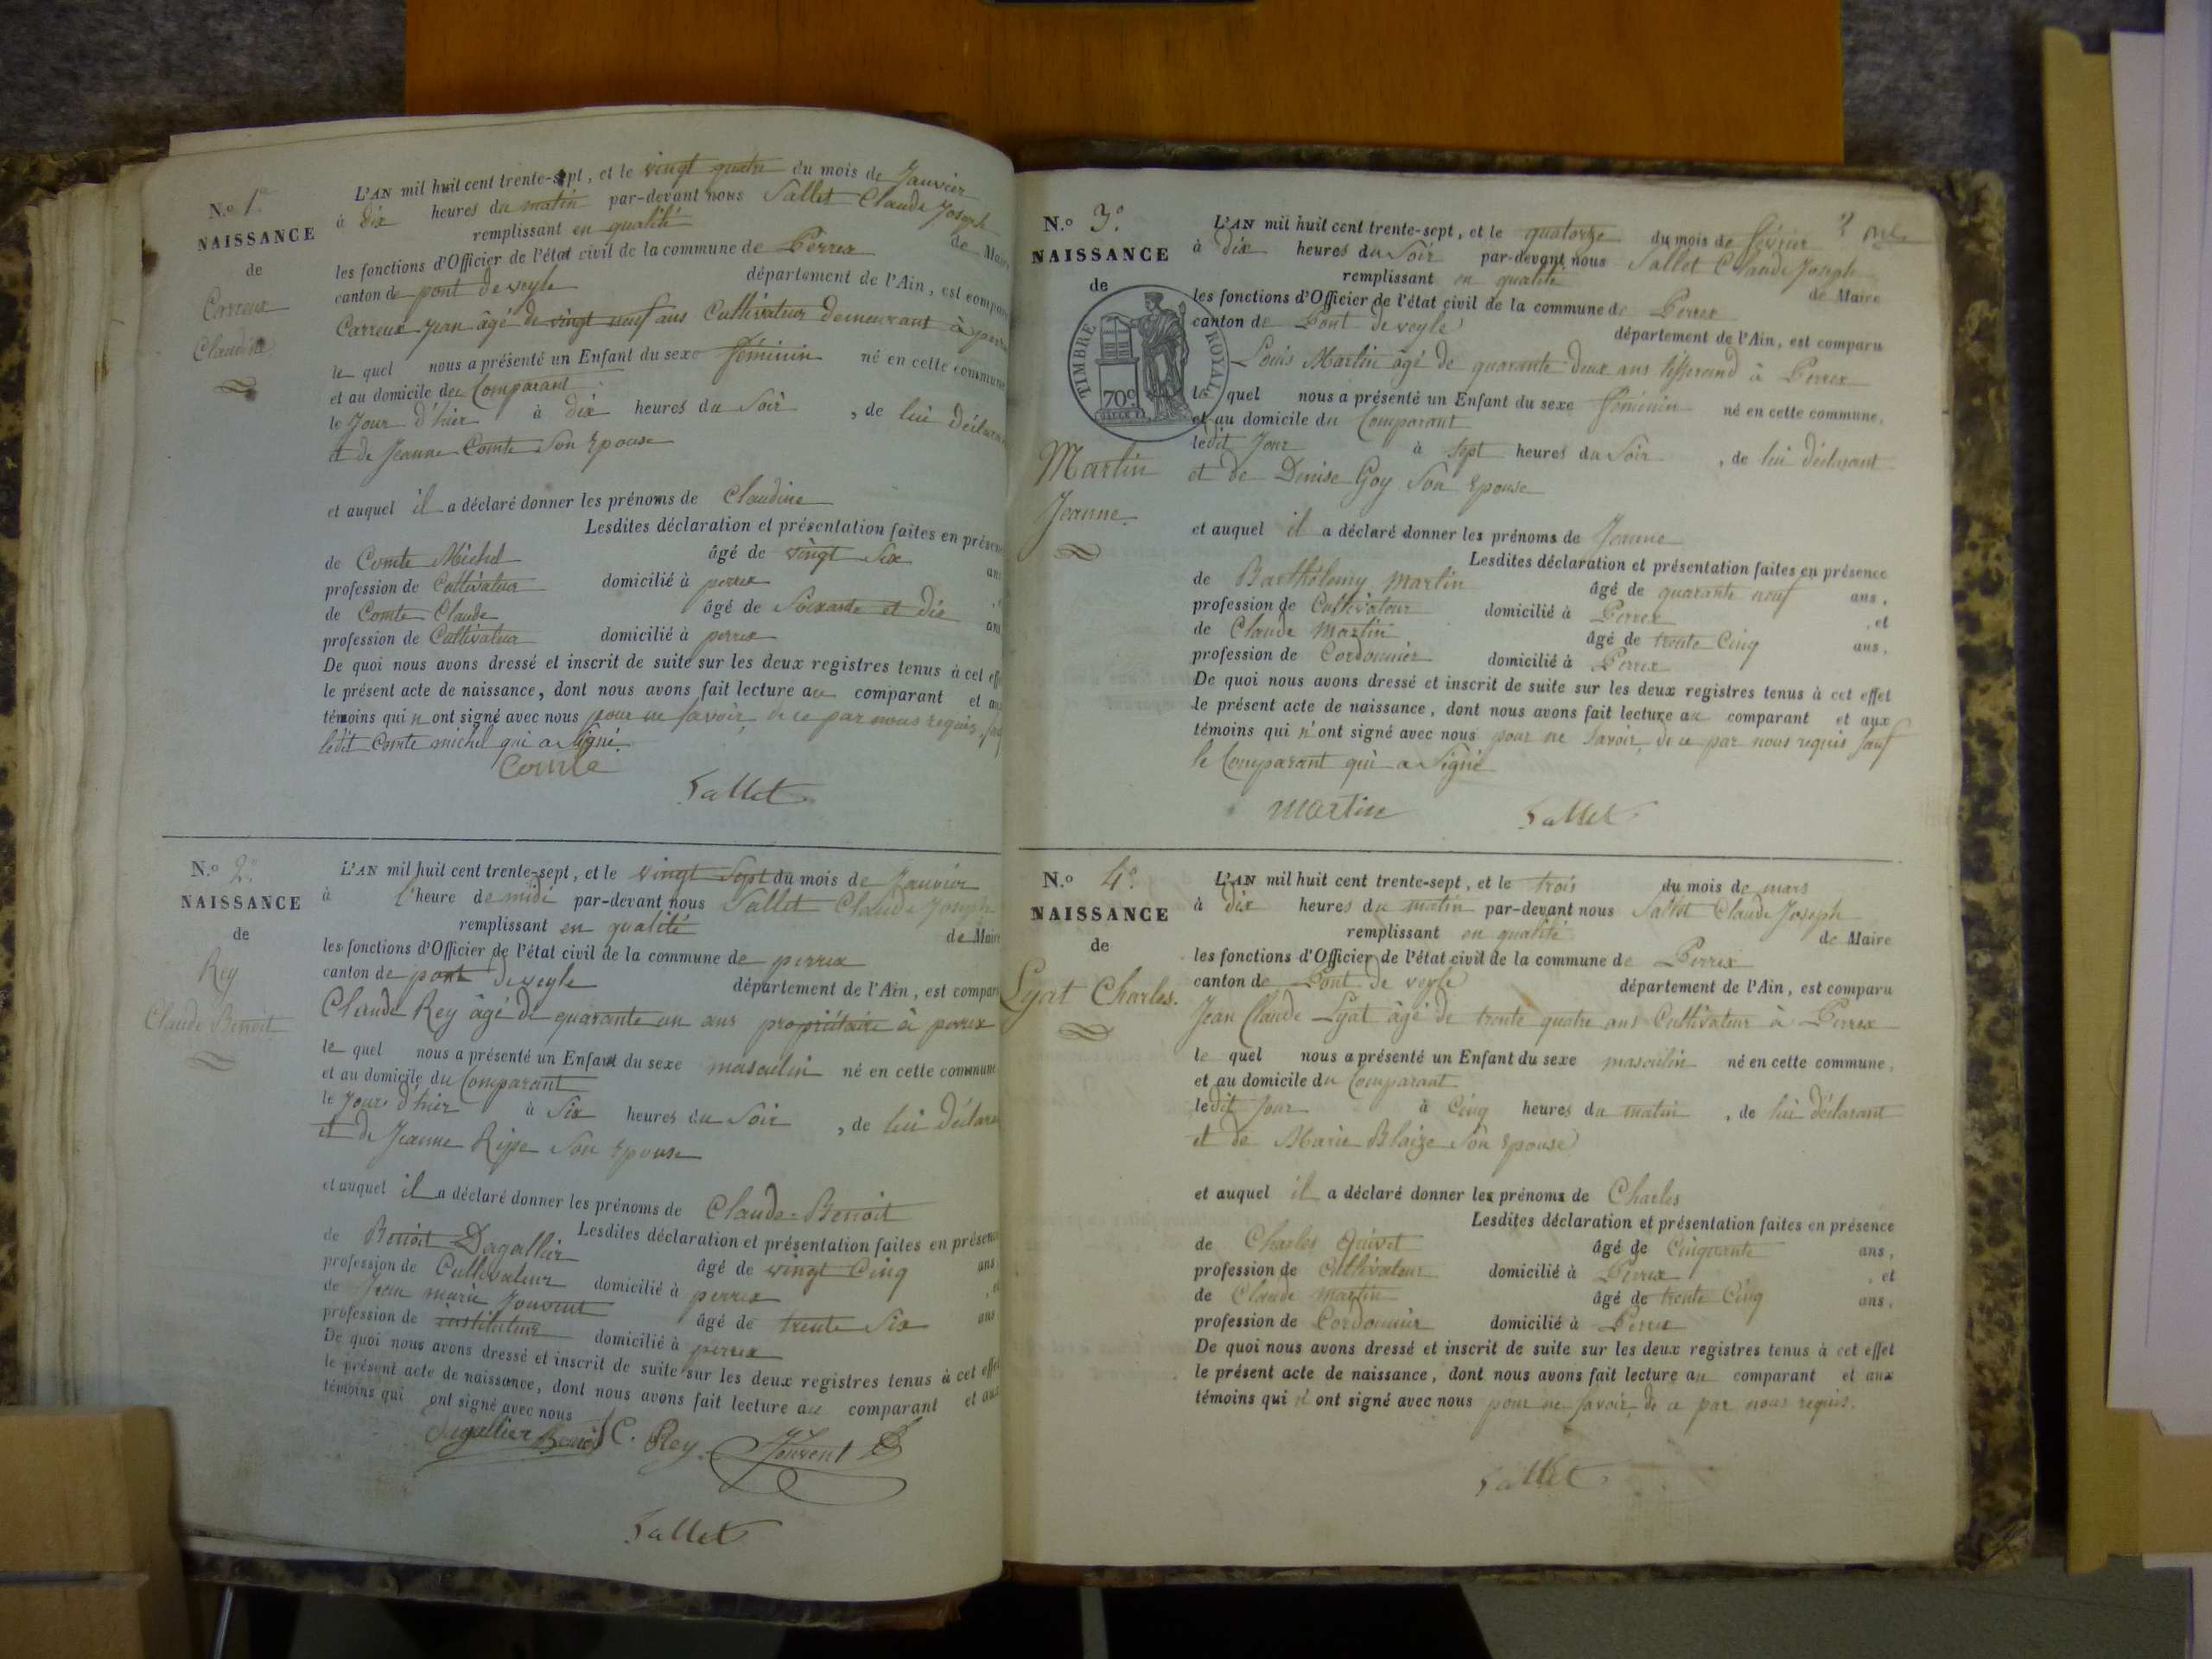 N.º 1º
NAISSANCE
de
Carreux
Claudine
L'AN mil huit cent trente-sept, et le vingt quatre du mois de Janvier
à dix heures du matin par-devant nous Sallet Claude Joseph
remplissant en qualité de Maire
les fonctions d'Officier de l'état civil de la commune de Perrex
canton de pont de veyle département de l'Ain, est compar
Carreux Jean âgé de vingt neuf ans Cultivateur demeurant à perrex
le quel nous a présenté un Enfant du sexe féminin né en cette commune
et au domicile du Comparant
le Jour d'hier à dix heures du Soir, de lui déclarant
et de Jeanne Comte Son Epouse
et auquel il a déclaré donner les prénoms de Claudine
Lesdites déclaration et présentation faites en présen
de Comte Michel âgé de vingt Six ans
profession de Cultivateur domicilié à perrex
de Comte Claude âgé de Soixante et dix ans
profession de Cultivateur domicilié à perrex
De quoi nous avons dressé et inscrit de suite sur les deux registres tenus à cet eff
le présent acte de naissance, dont nous avons fait lecture au comparant et au
témoins qui n'ont signé avec nous pour ne savoir, de ce par nous requis,
ledit Comte michel qui a Signé
Comte
Sallet
N.º 2º
NAISSANCE
de
Rey
Claude Benoit
L'AN mil huit cent trente-sept, et le vingt Sept du mois de Janvier
à l'heure de midi par-devant nous Sallet Claude Joseph
remplissant en qualité de Maire
les fonctions d'Officier de l'état civil de la commune de perrex
canton de pont de veyle département de l'Ain, est compar
Claude Rey âgé de quarante un ans propriétaire à perrex
le quel nous a présenté un Enfant du sexe masculin né en cette commune
et au domicile du Comparant
le Jour d'hier à Six heures du Soir, de lui déclara
et de Jeanne Rippe Son Epouse
et auquel il a déclaré donner les prénoms de Claude-Benoit
Lesdites déclaration et présentation faites en présen
de Benoit Dagallier âgé de vingt Cinq ans
profession de Cultivateur domicilié à perrex
de Jean marie Jouvent âgé de trente Six ans
profession de instituteur domicilié à perrex
De quoi nous avons dressé et inscrit de suite sur les deux registres tenus à cet effet
le présent acte de naissance, dont nous avons fait lecture au comparant et aux
témoins qui ont signé avec nous
Dagallier Benoit C. Rey Jouvent
Sallet
N.º 3º
NAISSANCE
de
TIMBRE ROYAL
70c
Martin
Jeanne
L'AN mil huit cent trente-sept, et le quatorze du mois de février
à dix heures du Soir par-devant nous Sallet Claude Joseph
remplissant en qualité de Maire
les fonctions d'Officier de l'état civil de la commune de Perrex
canton de Pont de veyle département de l'Ain, est comparu
Louis Martin âgé de quarante deux ans tisserand à Perrex
le quel nous a présenté un Enfant du sexe féminin né en cette commune,
et au domicile du Comparant
ledit Jour à Sept heures du Soir, de lui déclarant
et de Denise Goy Son Epouse
et auquel il a déclaré donner les prénoms de Jeanne
Lesdites déclaration et présentation faites en présence
de Barthélemy Martin âgé de quarante neuf ans,
profession de Cultivateur domicilié à Perrex, et
de Claude Martin âgé de trente Cinq ans,
profession de Cordonnier domicilié à Perrex
De quoi nous avons dressé et inscrit de suite sur les deux registres tenus à cet effet
le présent acte de naissance, dont nous avons fait lecture au comparant et aux
témoins qui n'ont signé avec nous pour ne Savoir, de ce par nous requis Sauf
le Comparant qui a Signé
Martin Sallet
N.º 4º
NAISSANCE
de
Lyat Charles.
L'AN mil huit cent trente-sept, et le trois du mois de mars
à dix heures du matin par-devant nous Sallet Claude Joseph
remplissant en qualité de Maire
les fonctions d'Officier de l'état civil de la commune de Perrex
canton de Pont de veyle département de l'Ain, est comparu
Jean Claude Lyat âgé de trente quatre ans Cultivateur à Perrex
le quel nous a présenté un Enfant du sexe masculin né en cette commune,
et au domicile du Comparant
ledit Jour à Cinq heures du matin, de lui déclarant
et de Marie Blaize Son Epouse
et auquel il a déclaré donner les prénoms de Charles
Lesdites déclaration et présentation faites en présence
de Charles Quivet âgé de Cinquante ans,
profession de Cultivateur domicilié à Perrex, et
de Claude Martin âgé de trente Cinq ans,
profession de Cordonnier domicilié à Perrex
De quoi nous avons dressé et inscrit de suite sur les deux registres tenus à cet effet
le présent acte de naissance, dont nous avons fait lecture au comparant et aux
témoins qui n'ont signé avec nous pour ne Savoir, de ce par nous requis.
Sallet